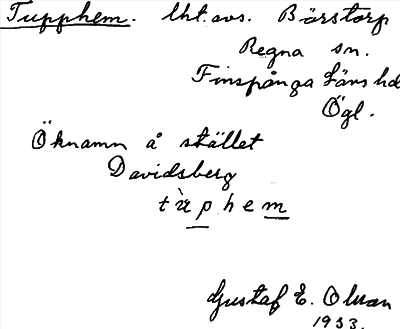 Tupphem. lht. avs. Bärstorp
Regna sn.
Finspånga läns hd
Ögl.
Öknamn å stället
Davidsberg
tùphem
Gustaf E. Olsson
1933.